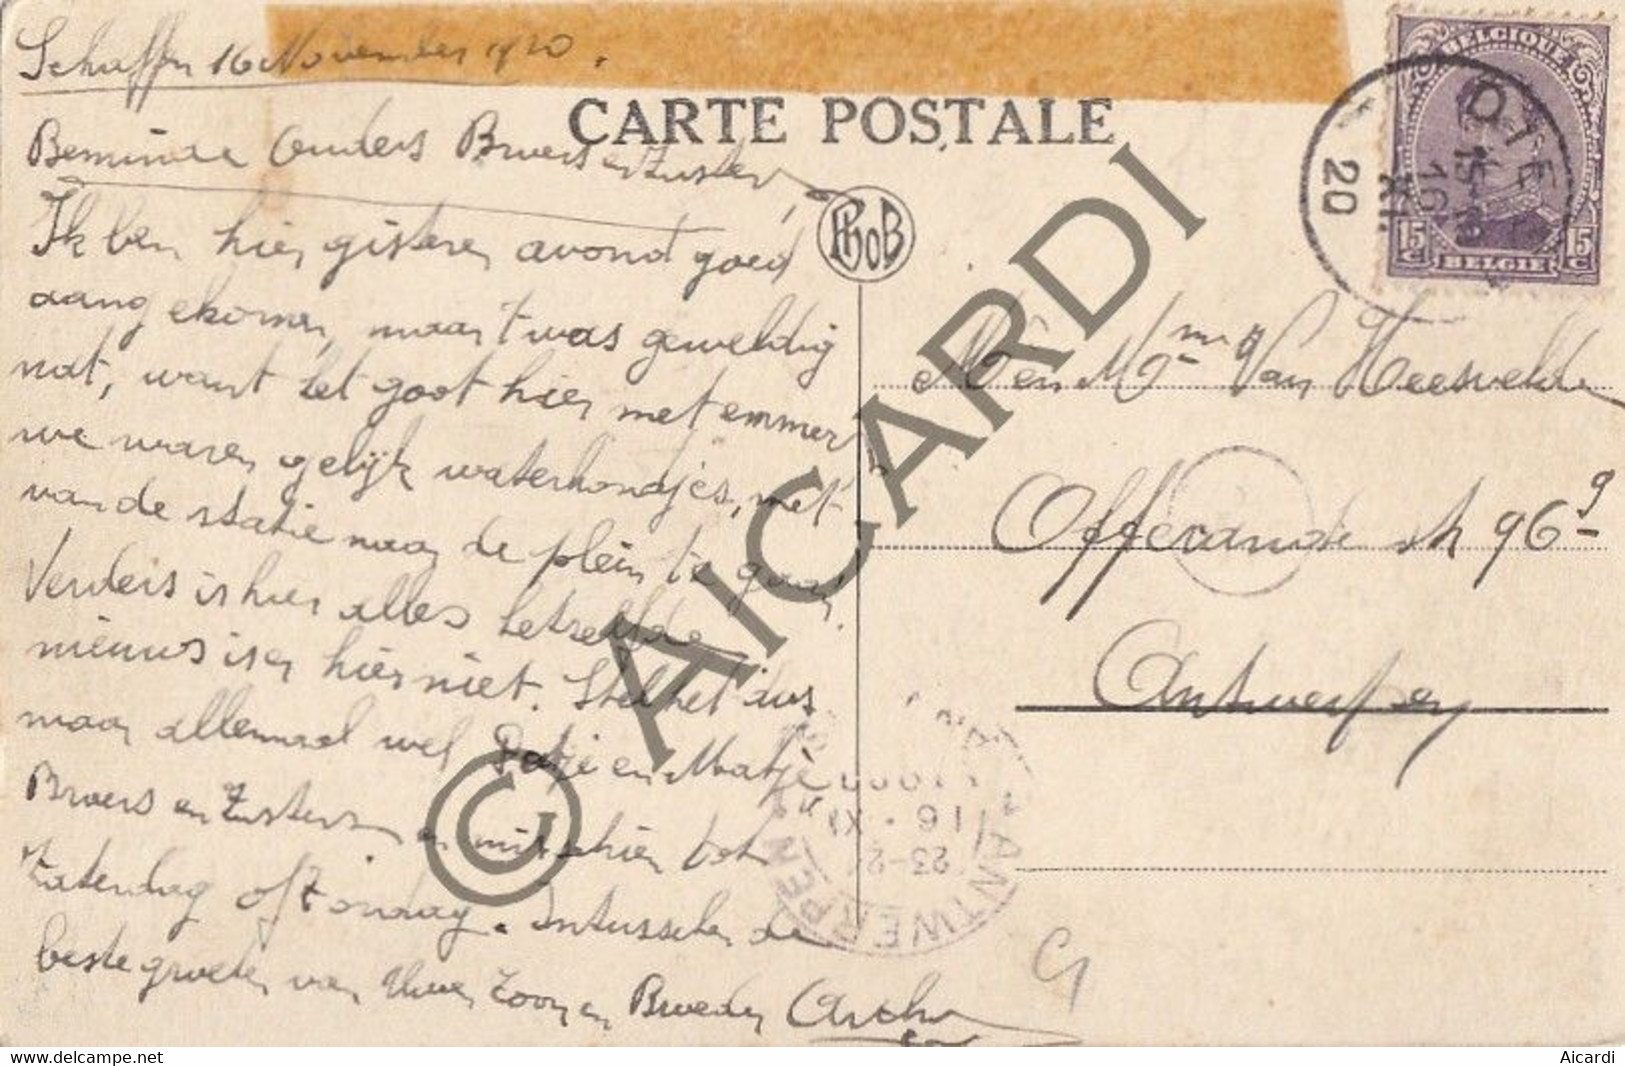 Schaffen 16 November 1920.
CARTE POSTALE
Beminde Ouders Broers en Zuster,
Ik ben hier gisteren avond goed
aangekomen, maar 't was geweldig
nat, want het goot hier met emmer
we waren gelijk waterhondjes, met
van de statie naar de plein te gaan.
Verders is hier alles hetzelfde
nieuws is er hier niet. Stel het dus
maar allemaal wel Patje en Matje
Broers en Zusters en misschien tot
Zaterdag of Zondag. Intusschen de
beste groeten van Uwen Zoon en Broeder Arthur
PhoB
BELGIQUE
15 c
BELGIE
15 c
XI
20
M en Mme Van Heesvelde
Offerande st 96
Antwerpen
ANTWERPEN
16 XI
© AICARDI
delcampe.net
Aicardi